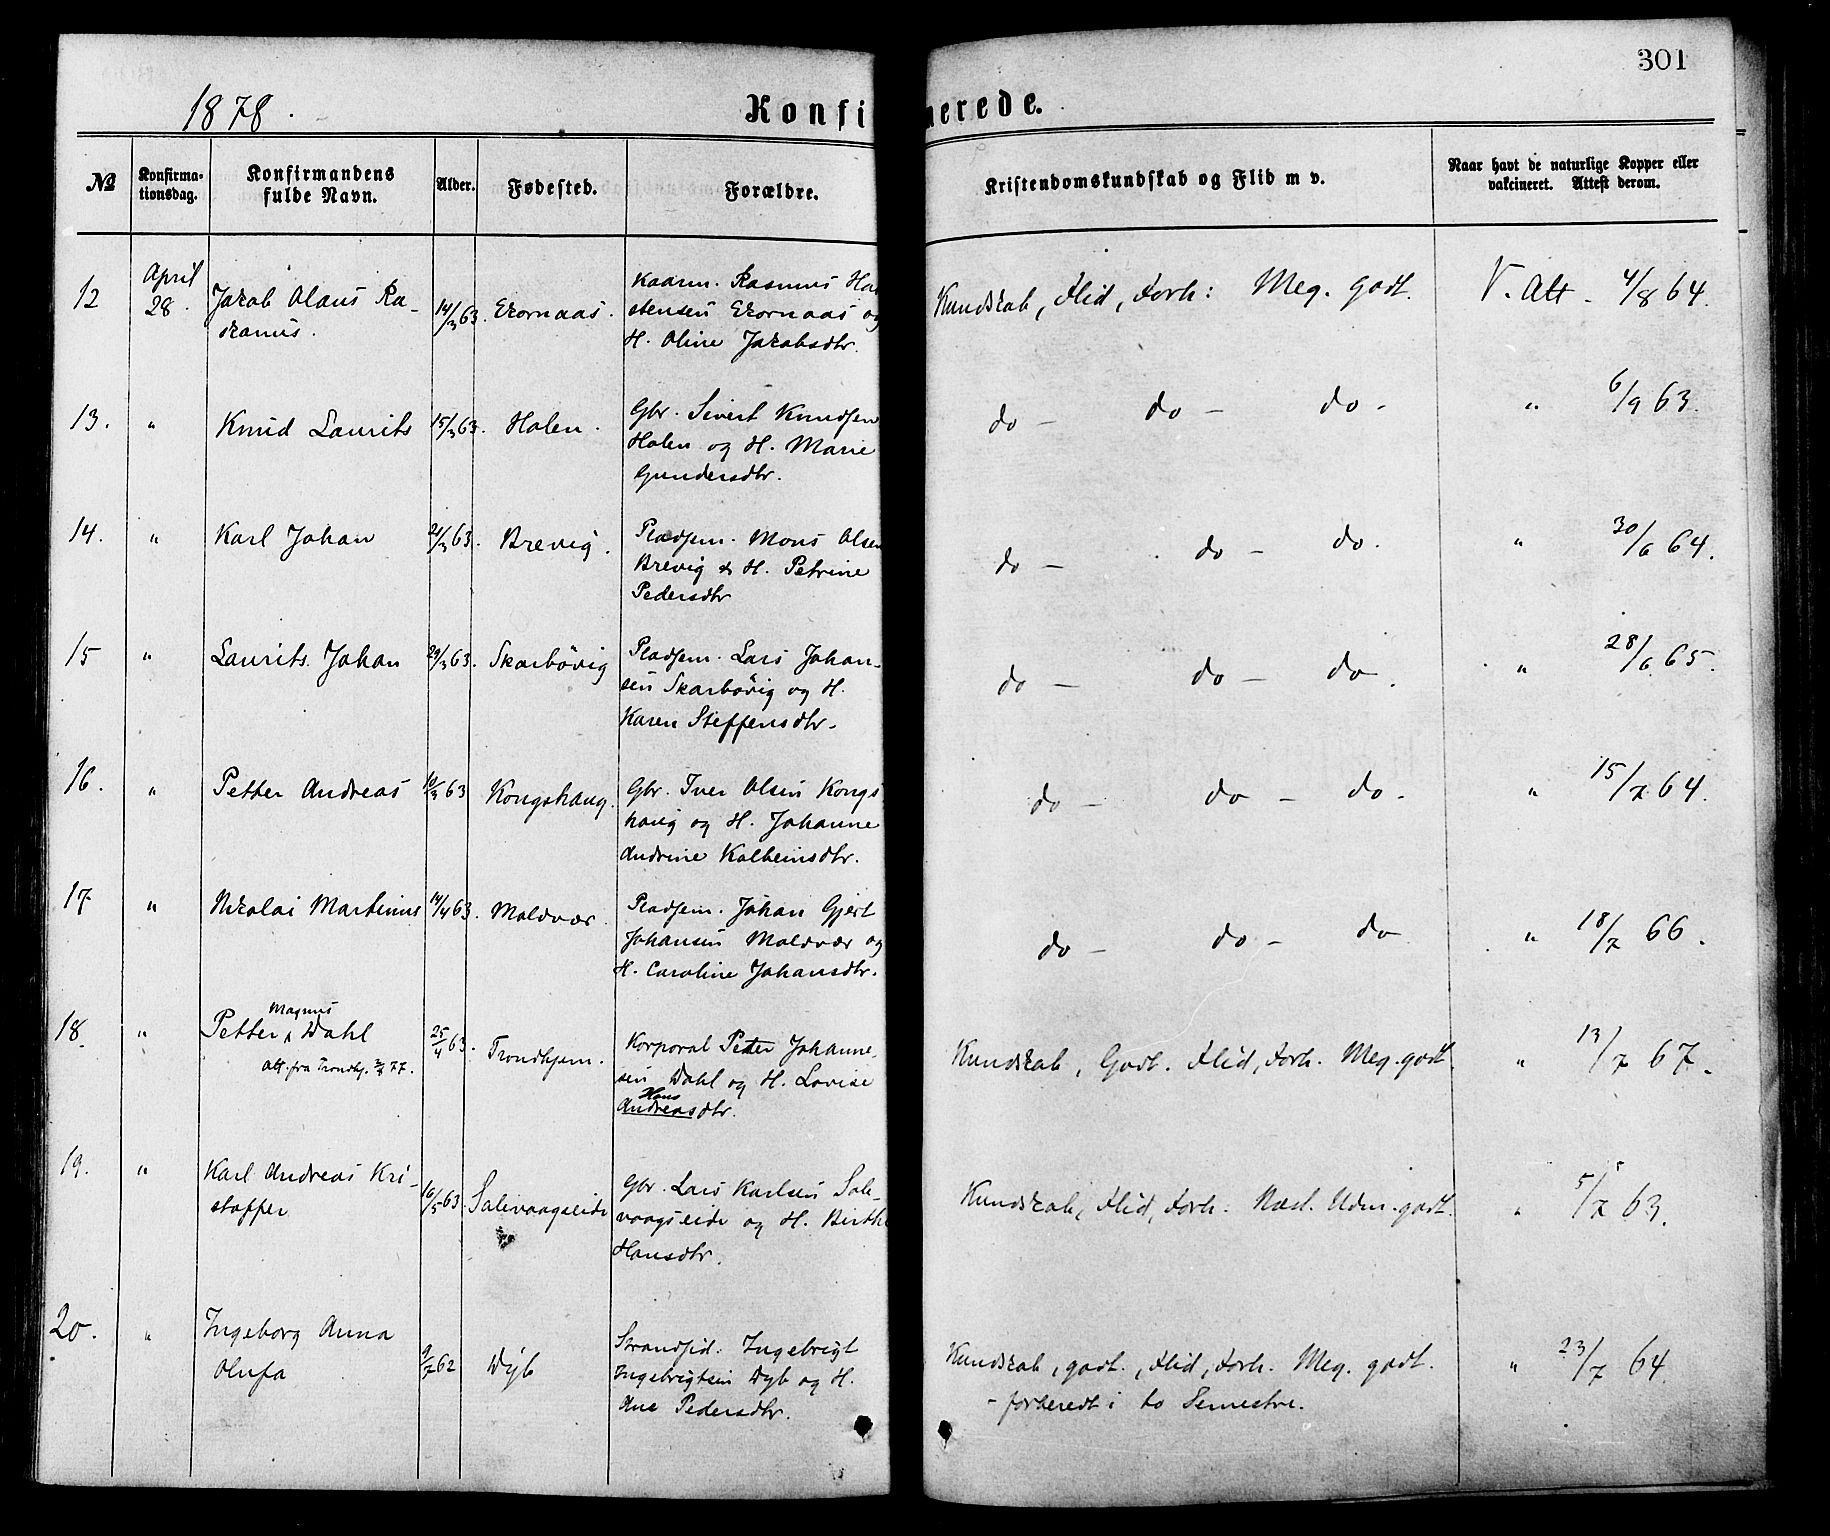 301
1878.
Konfi
nerede.
№
Konfirma-
tionsdag.
Konfirmandens
fulde Navn.
Alder.
Fødested.
Forældre.
Kristendomskundskab og Flid m v.
Naar havt de naturlige Kopper eller
vakcineret. Attest derom.
12
April
28.
Jakob Olaus Ra-
skanus.
14/3 63.
Ekornaas.
Kaarm. Rasmus Ha
stensen Ekornaas og
H. Oline Jakobsdtr.
Kundskab, Flid, Forh: Meg. godt.
V. Att. 4/8 64.
13.
"
Knud Laurits
15/3 63.
Holen.
Gbr. Sivert Knudsen
Holen og H. Marie
Gundersdtr.
do — do — do.
" 6/9 63.
14.
"
Karl Johan
21/3 63.
Brevig.
Pladsem. Mons Olsen
Brevig & H. Petrine
Pedersdtr
do — do — do.
" 30/6 64.
15
"
Laurits Johan
29/3 63.
Skarbövig
Pladsem. Lars Johan-
sen Skarbövig og H.
Karen Steffensdtr.
do — do — do.
" 28/6 65.
16.
"
Petter Andreas
10/3 63
Kongshaug.
Gbr. Iver Olsen Kongs
haug og H. Johanne
Andrine Kolbeinsdtr.
do — do — do.
" 15/7 64.
17
"
Nikolai Martinus
14/4 63.
Moldvær.
Pladsem. Johan Gjert
Johansen Moldvær og
H. Caroline Johansdtr.
do — do — do
" 18/7 66.
18.
"
Magnus
Petter ʌ Dahl
att. fra Trondhj. 77.
25/4 63.
Trondhjem.
Korporal Peder Johanne-
sen Dahl og H. Lovise
Hans
Andreasdtr.
Kundskab, Godt. Flid, Forh. Meg. godt
" 13/7 67.
19.
"
Karl Andreas Kri-
stoffer
16/5 63.
Salevaagseide
Gbr. Lars Karlsen Sale-
vaagseide og H. Birthe
Hansdtr.
Kundskab, Flid, Forh. Næst. Udm. godt.
" 5/7 63.
20.
"
Ingeborg Anna
Olufa
9/7 62
Dyb
Strandsid. Ingebrigt
Ingebrigtsen Dyb og H.
Ane Pedersdtr.
Kundskab, godt., Flid, Forh. Meg. godt.
- forberedt i to Semestre.
" 23/7 64.